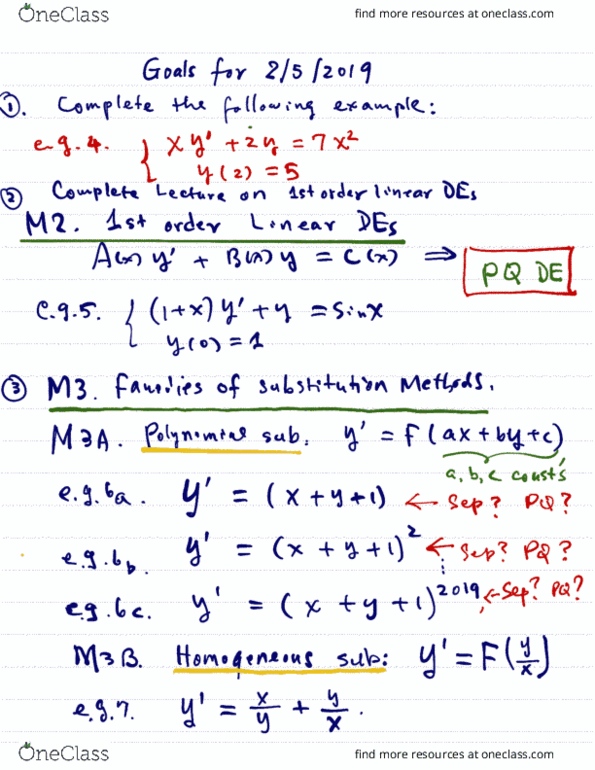 OneClass
find more resources at oneclass.com
Goals for 2/5/2019
①. Complete the following example:
e.g.4. { xy' + 2y = 7x²
y(2) = 5
② Complete Lecture on 1st order linear DEs
M2. 1st order Linear DEs
A(x) y' + B(x) y = C(x) ⇒ PQ DE
e.g.5. { (1+x) y' + y = sinx
y(0) = 1
③ M3. Families of substitution Methods.
M3A. Polynomial sub. y' = F(ax+by+c)
a, b, c const's
e.g.6a. y' = (x+y+1) ← Sep? PQ?
e.g.6b. y' = (x+y+1)² ← Sep? PQ?
e.g.6c. y' = (x+y+1)²⁰¹⁹ ← Sep? PQ?
M3B. Homogeneous sub: y' = F(y/x)
e.g.7. y' = x/y + y/x.
OneClass
find more resources at oneclass.com